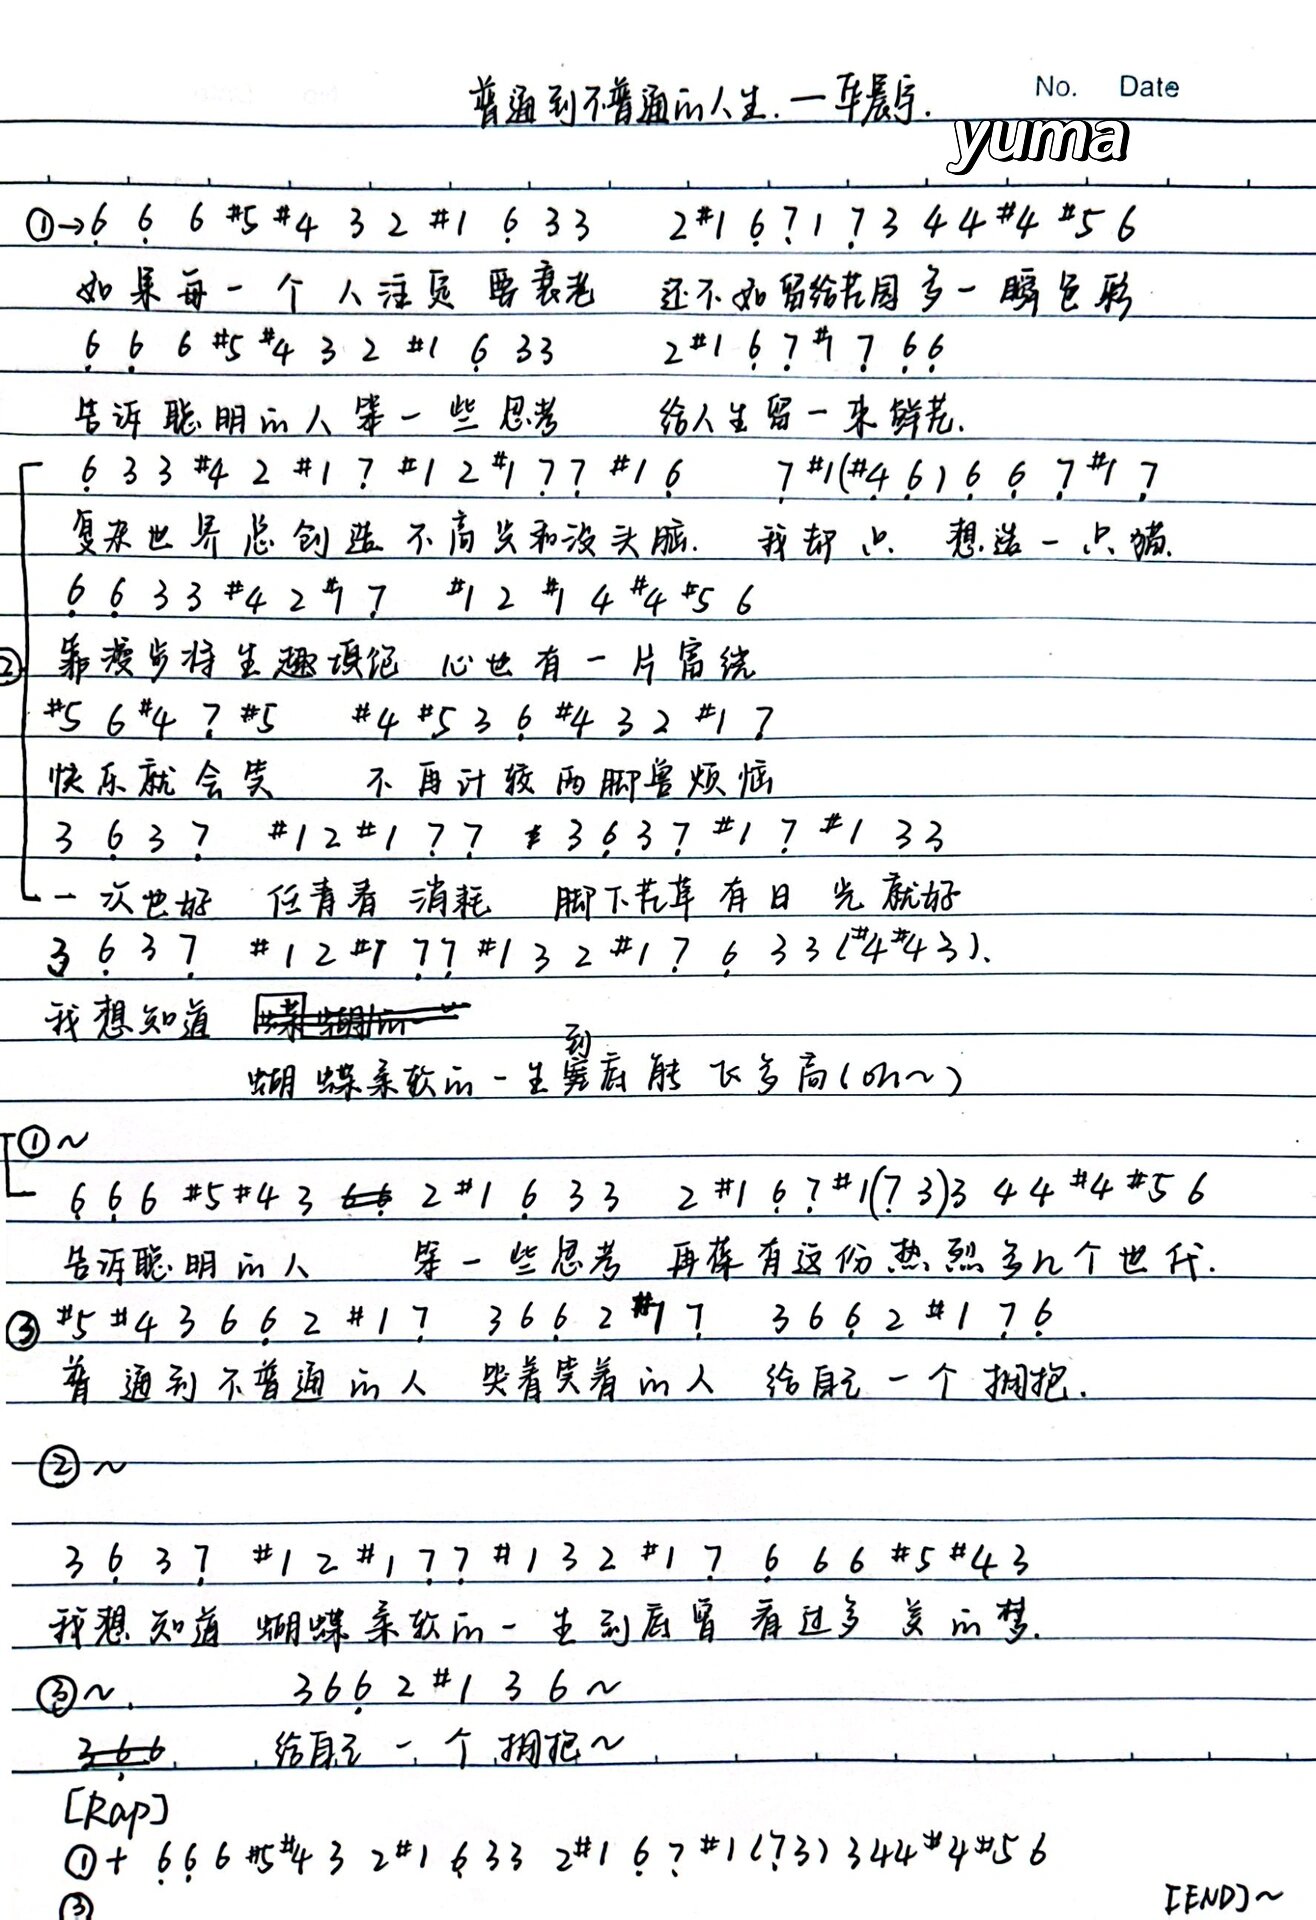 普通到不普通的人生.—华晨宇.
No. Date
yuma
①→6̣ 6̣ 6 #5 #4 3 2 #1 6̣ 3 3 2 #1 6̣ 7̣ 1 7̣ 3 4 4 #4 #5 6
如果每一个人注定要衰老 还不如留给花园多一瞬色彩
6̣ 6̣ 6 #5 #4 3 2 #1 6̣ 3 3 2 #1 6̣ 7̣ #1 7̣ 6̣ 6̣
告诉聪明的人笨一些思考 给人生留一束鲜花.
6̣ 3 3 #4 2 #1 7̣ #1 2 #1 7̣ 7̣ #1 6̣ 7̣ #1(#4 6̣) 6̣ 6̣ 7̣ #1 7̣
复杂世界总创造不高兴和没头脑. 我却只想造一只猫.
6̣ 6̣ 3 3 #4 2 #1 7̣ #1 2 #1 4 #4 #5 6
② 靠漫步将生趣填饱 心也有一片富饶
#5 6 #4 7̣ #5 #4 #5 3 6̣ #4 3 2 #1 7̣
快乐就会笑 不再计较两脚兽烦恼
3 6̣ 3 7̣ #1 2 #1 7̣ 7̣ 3 6̣ 3 7̣ #1 7̣ #1 3 3
一次也好 任青春消耗 脚下花草有日光就好
3 6̣ 3 7̣ #1 2 #1 7̣ 7̣ #1 3 2 #1 7̣ 6̣ 3 3 (#4 #4 3).
我想知道
蝴蝶柔软的一生到底能飞多高(oh~)
①~
6̣ 6̣ 6 #5 #4 3 2 #1 6̣ 3 3 2 #1 6̣ 7̣ #1(7̣ 3)3 4 4 #4 #5 6
告诉聪明的人 笨一些思考 再葆有这份热烈多几个世代.
③ #5 #4 3 6 6̣ 2 #1 7̣ 3 6 6̣ 2 #1 7̣ 3 6 6̣ 2 #1 7̣ 6̣
普通到不普通的人 哭着笑着的人 给自己一个拥抱.
②~
3 6̣ 3 7̣ #1 2 #1 7̣ 7̣ #1 3 2 #1 7̣ 6̣ 6 6 #5 #4 3
我想知道 蝴蝶柔软的一生到底曾看过多美的梦.
③~. 3 6 6̣ 2 #1 3 6~
给自己一个拥抱~
[Rap]
①+ 6̣ 6̣ 6 #5 #4 3 2 #1 6̣ 3 3 2 #1 6̣ 7̣ #1(7̣ 3) 3 4 4 #4 #5 6
③
[END]~